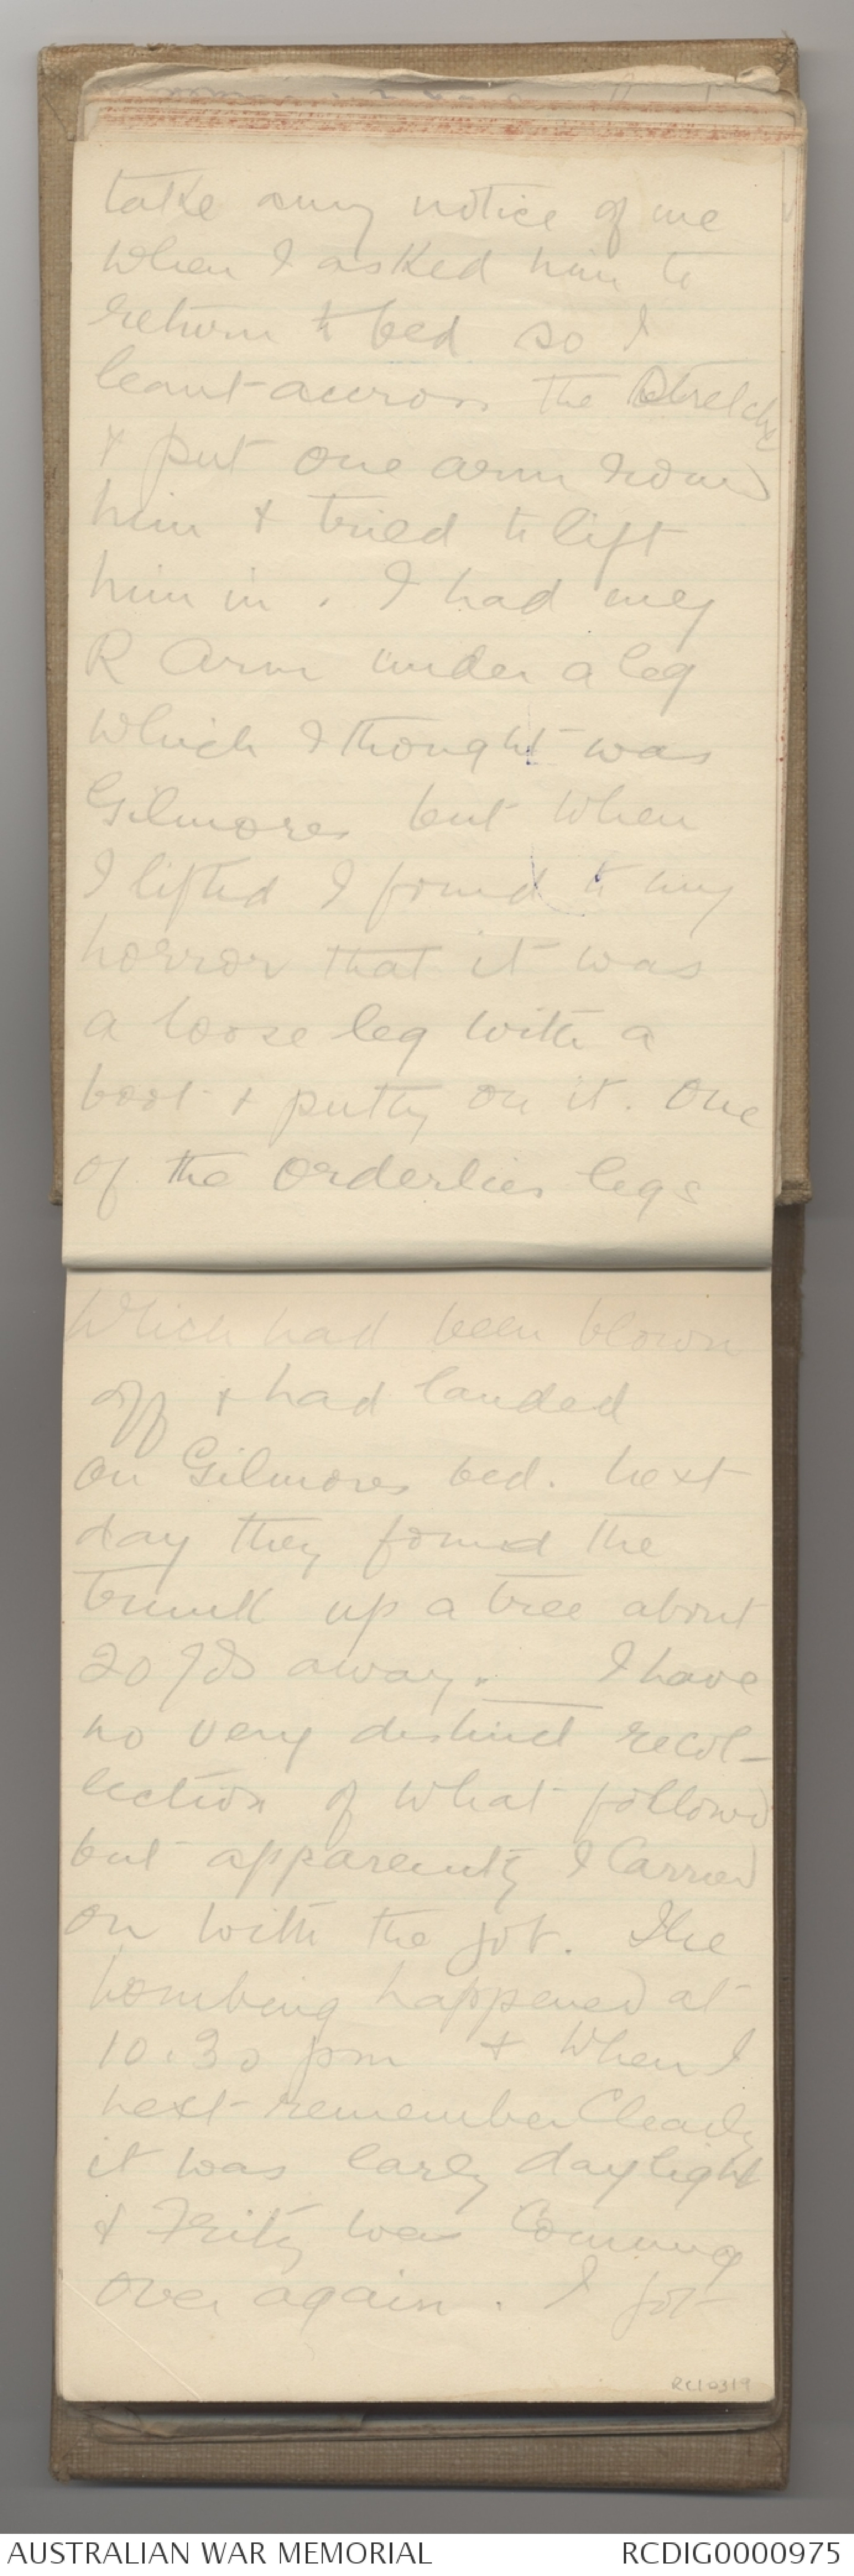 take any notice of me
when I asked him to
return to bed so I
leant across the stretcher
& put one arm round
him & tried to lift
him in. I had my
R arm under a leg
which I thought was
Gilmores but when
I lifted I found to my
horror that it was
a loose leg with a
boot & putty on it. One
of the Orderlies legs
Which had been blown
off & had landed
on Gilmores bed. Next
day they found the
trunk up a tree about
20 yds away. I have
no very distinct recol-
lection of what followed
but apparently I carried
on with the job. The
bombing happened at
10.30 pm & when I
next remember Clearly
it was early daylight
& Fritz was Coming
over again. I got
RC10319
AUSTRALIAN WAR MEMORIAL
RCDIG0000975